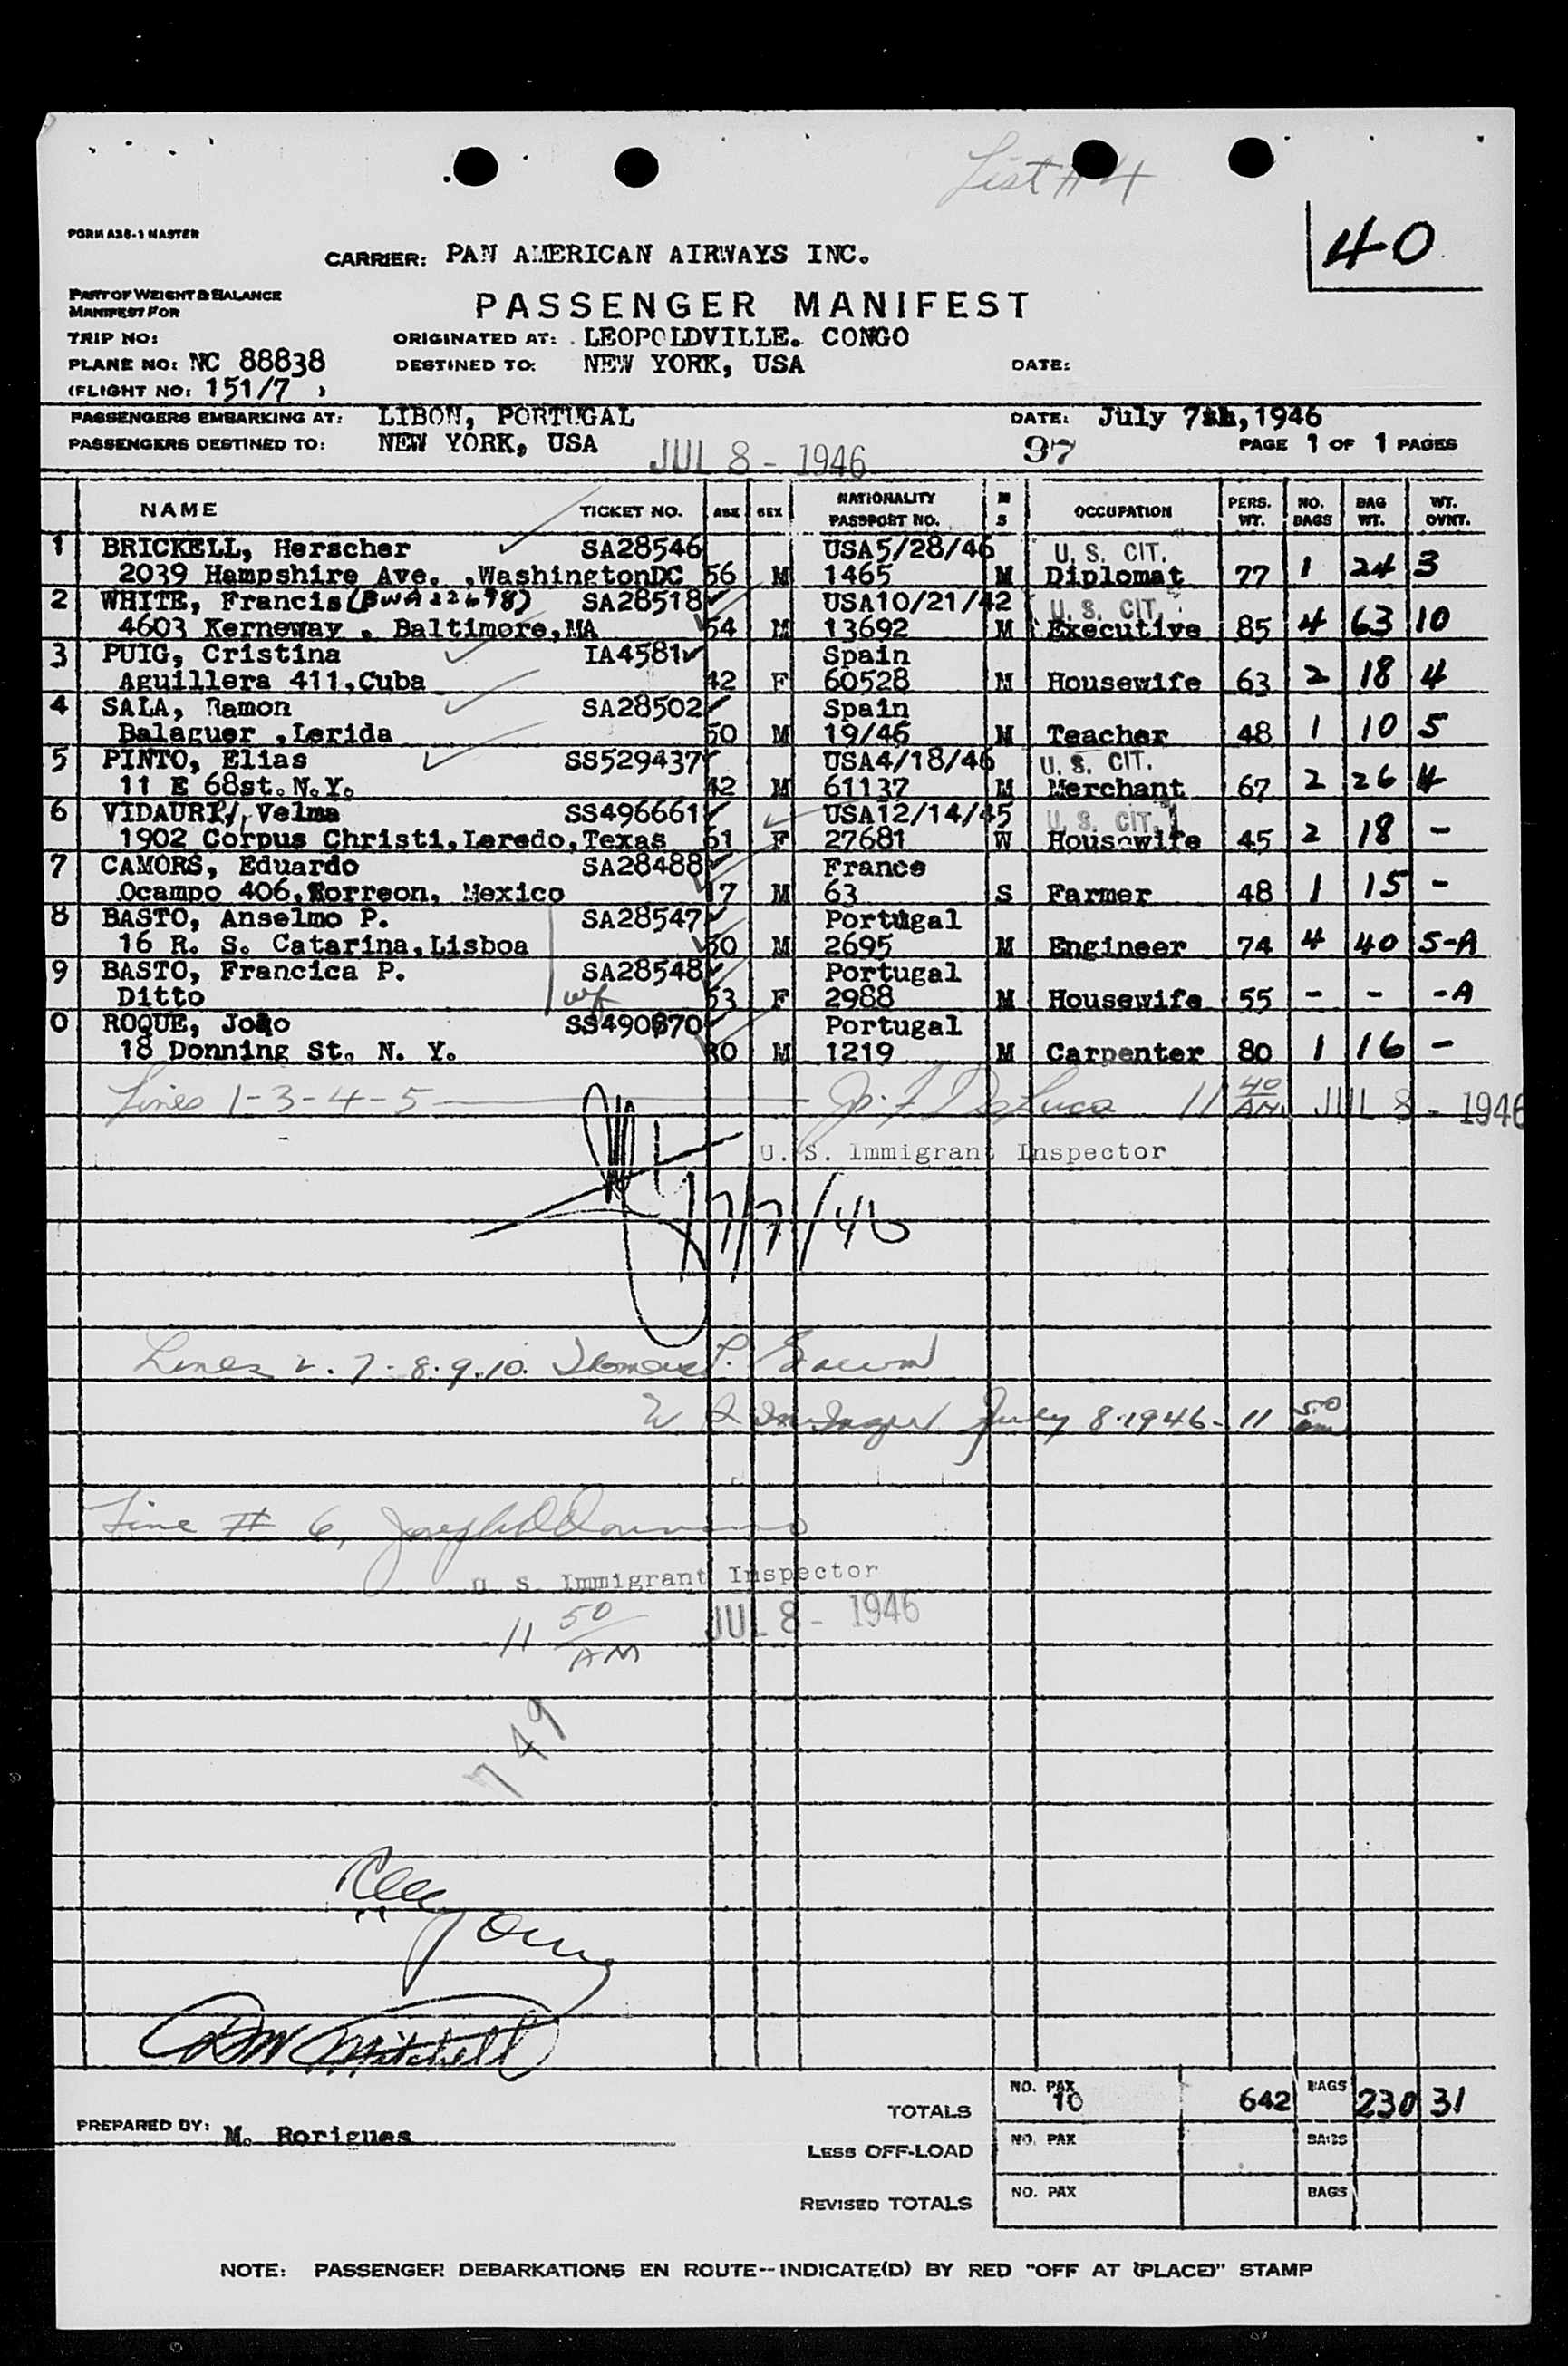 List # 4
40
FORM A38-1 MASTER
CARRIER: PAN AMERICAN AIRWAYS INC.
PART OF WEIGHT & BALANCE
MANIFEST FOR
PASSENGER MANIFEST
TRIP NO:
ORIGINATED AT: LEOPOLDVILLE. CONGO
PLANE NO: NC 88838
DESTINED TO: NEW YORK, USA
DATE:
(FLIGHT NO: 151/7 )
PASSENGERS EMBARKING AT: LIBON, PORTUGAL
DATE: July 7th, 1946
PASSENGERS DESTINED TO: NEW YORK, USA
JUL 8 - 1946
97
PAGE 1 OF 1 PAGES
NAME TICKET NO. AGE SEX NATIONALITY PASSPORT NO. M S OCCUPATION PERS. WT. NO. BAGS BAG WT. WT. OVNT.
1 BRICKELL, Herscher SA28546 USA5/28/46 U. S. CIT.
2039 Hampshire Ave. ,WashingtonDC 56 M 1465 M Diplomat 77 1 24 3
2 WHITE, Francis(BWA22698) SA28518 USA10/21/42 U. S. CIT.
4603 Kerneway . Baltimore,MA 54 M 13692 M Executive 85 4 63 10
3 PUIG, Cristina IA4581 Spain
Aguillera 411,Cuba 42 F 60528 M Housewife 63 2 18 4
4 SALA, Ramon SA28502 Spain
Balaguer ,Lerida 50 M 19/46 M Teacher 48 1 10 5
5 PINTO, Elias SS529437 USA4/18/46 U. S. CIT.
11 E 68st.N.Y. 42 M 61137 M Merchant 67 2 26 4
6 VIDAURI, Velma SS496661 USA12/14/45 U. S. CIT.
1902 Corpus Christi,Leredo,Texas 61 F 27681 W Housewife 45 2 18 -
7 CAMORS, Eduardo SA28488 France
Ocampo 406,Torreon, Mexico 17 M 63 S Farmer 48 1 15 -
8 BASTO, Anselmo P. SA28547 Portugal
16 R. S. Catarina,Lisboa 50 M 2695 M Engineer 74 4 40 5-A
9 BASTO, Francica P. SA28548 Portugal
Ditto wf 53 F 2988 M Housewife 55 - - -A
0 ROQUE, João SS490870 Portugal
18 Donning St. N. Y. 30 M 1219 M Carpenter 80 1 16 -
Lines 1-3-4-5 Jo. F DeLuca 11 40 AM. JUL 8 - 1946
U. S. Immigrant Inspector
7/7/46
Lines 2.7-8.9.10. Thomas P.
July 8-1946- 11 50 am
Line # 6, Joseph
U. S. Immigrant Inspector
11 50 AM JUL 8 - 1946
749
DW Mitchell
TOTALS NO. PAX 10 642 BAGS 230 31
PREPARED BY: M. Rorigues
LESS OFF-LOAD NO. PAX BAGS
REVISED TOTALS NO. PAX BAGS
NOTE: PASSENGER DEBARKATIONS EN ROUTE--INDICATE(D) BY RED "OFF AT (PLACE)" STAMP